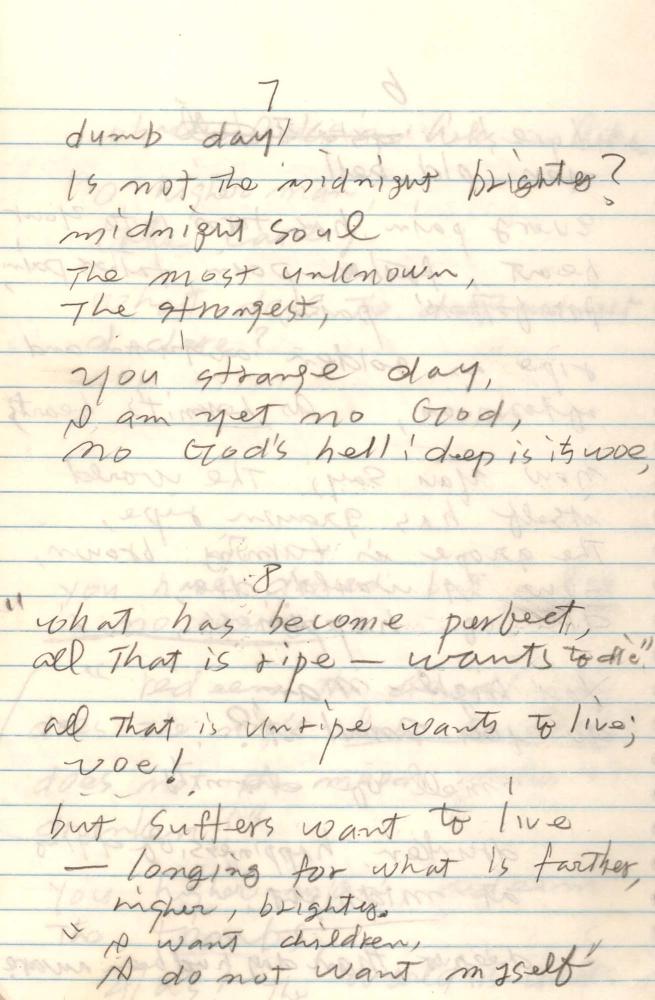 7
dumb day!
Is not the midnight brighter?
midnight soul
The most unknown,
The strongest,
you strange day,
I am yet no God,
no God's hell! deep is its woe,
8
"what has become perfect,
all That is ripe — wants to die"
all That is unripe wants to live;
woe!
but suffers want to live
— longing for what is farther,
higher, brighter.
"I want children,
I do not want myself"